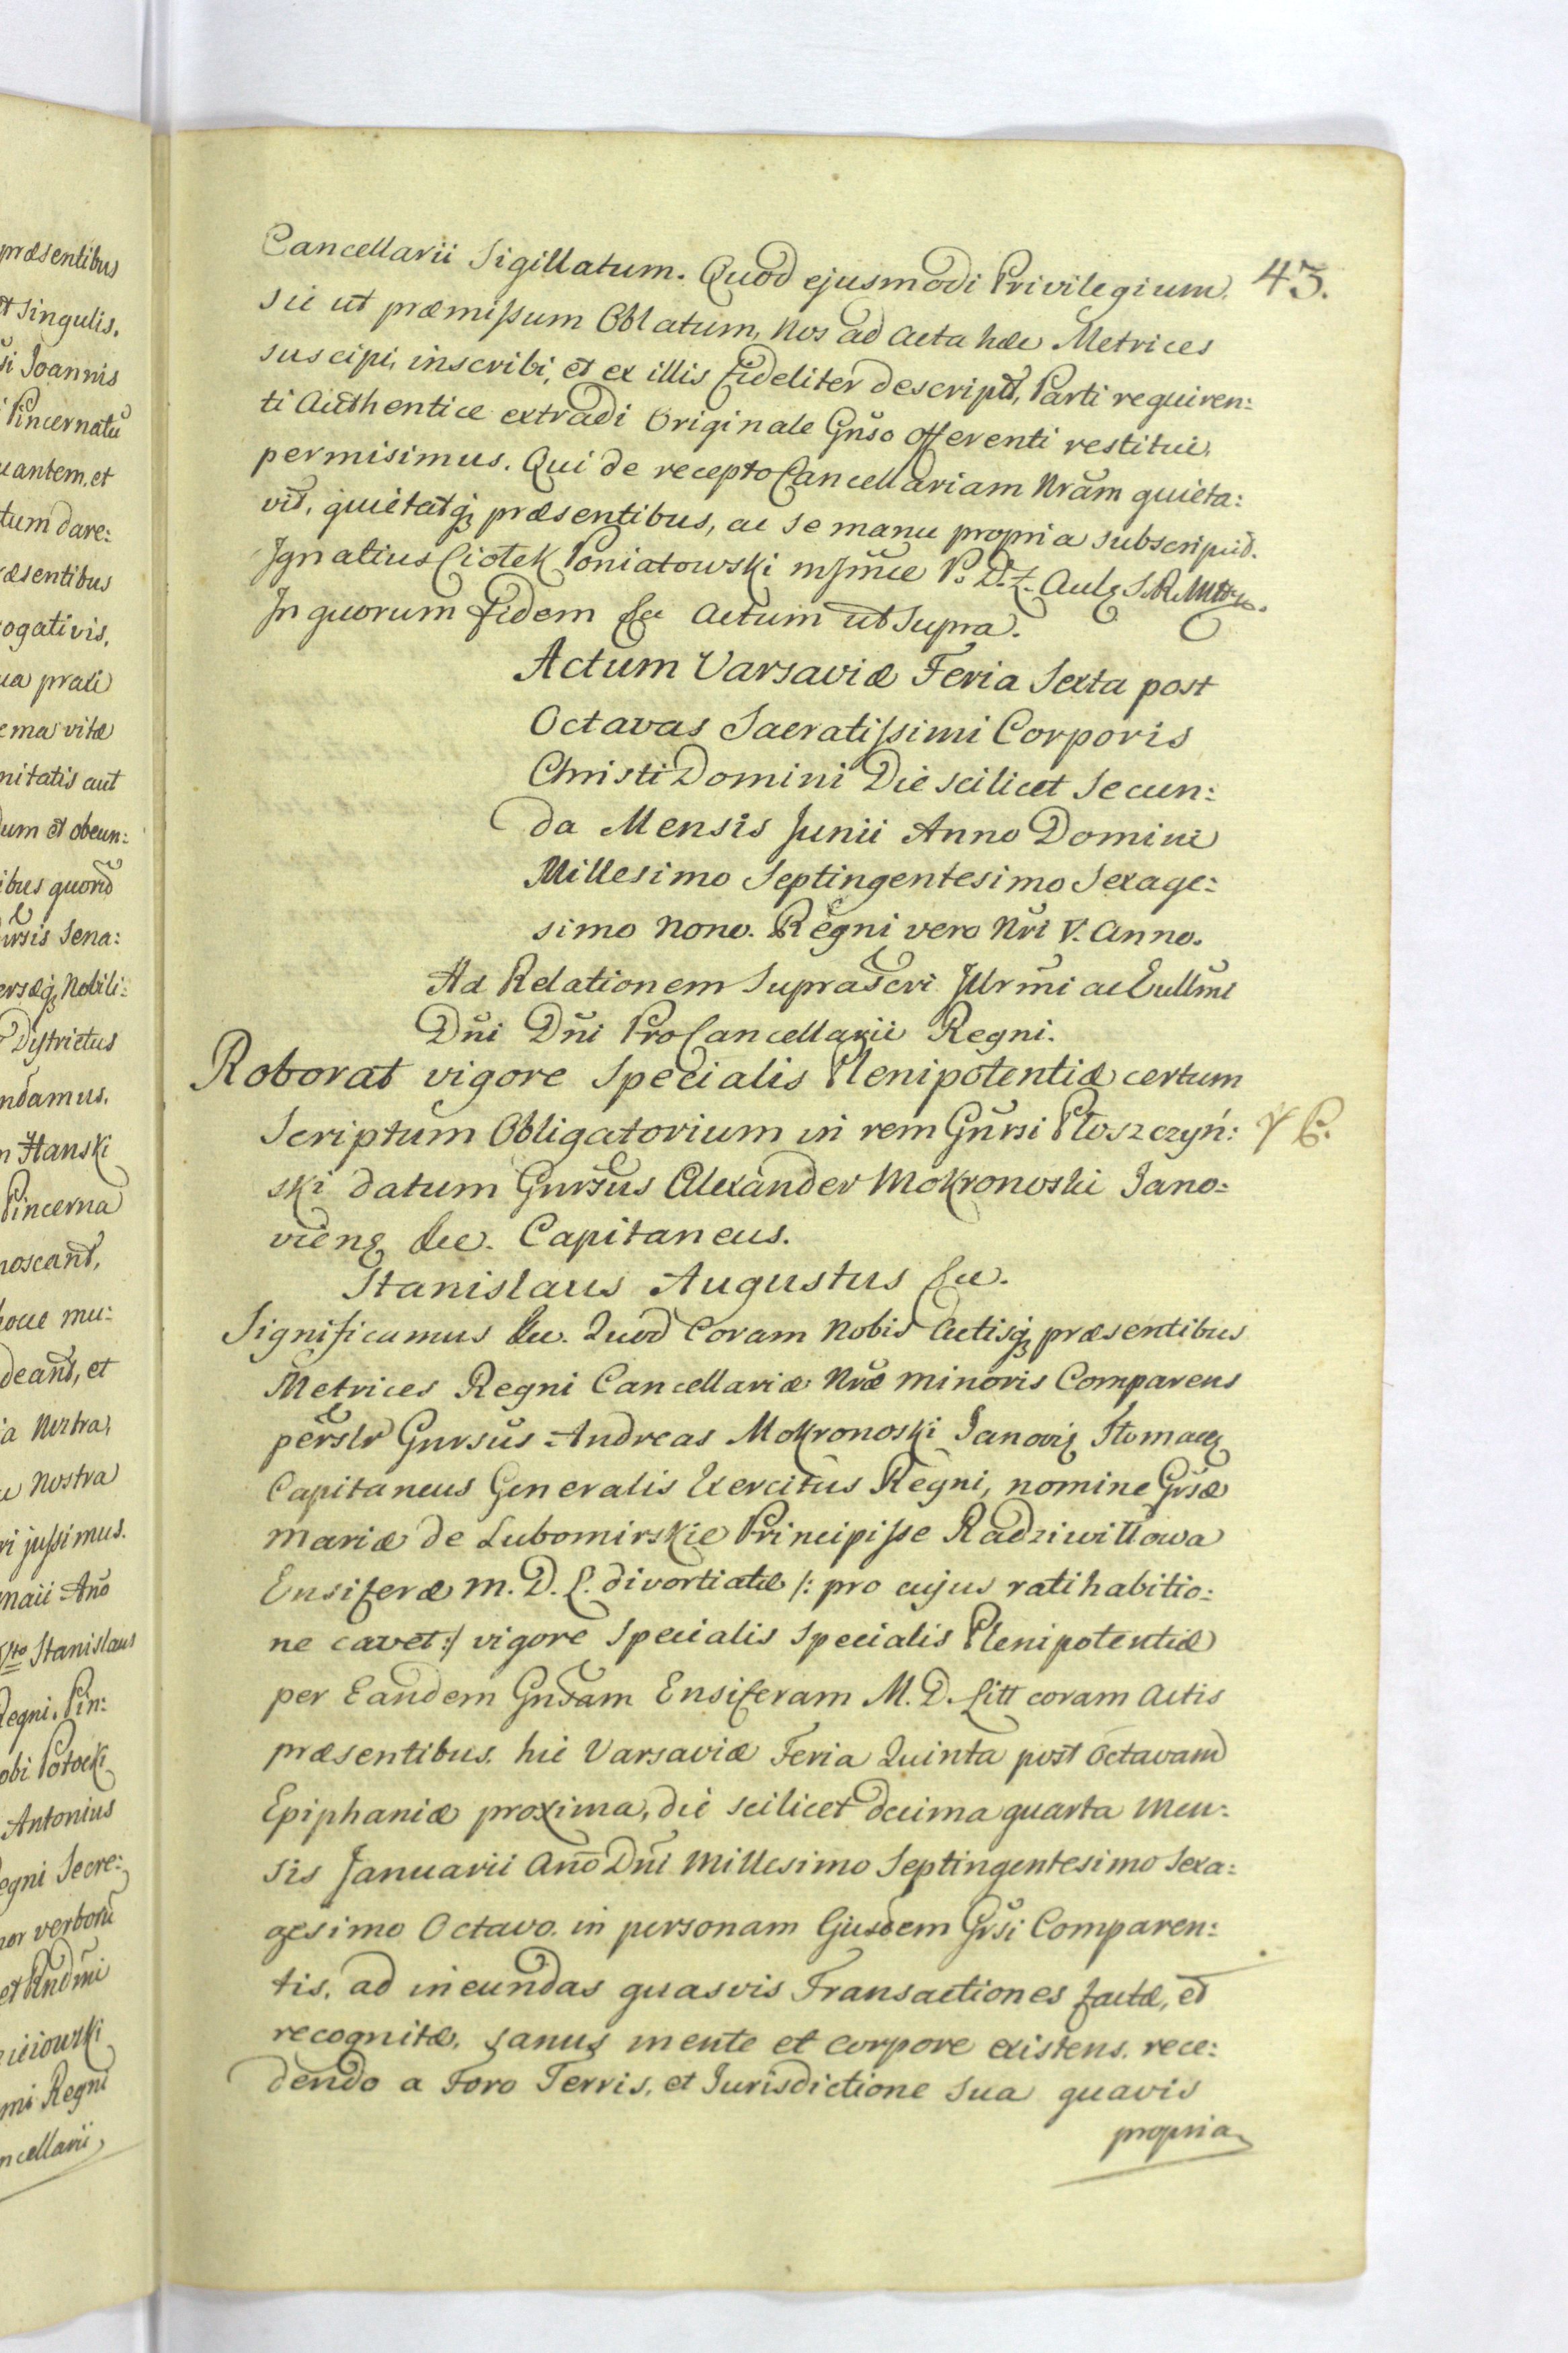 præsentibus
et singulis.
si Joannis
Pincernatu
uantem, et
tum dare:
ræsentibus
rogativis,
ema vitæ
nitatis aut
dum et obeun:
ibus quorũ
Sena:
Nobili:
Districtus
ndamus.
n Hanski
Pincerna
noscant,
mu:
deant, et
nostra
ri jussimus.
maii Año
Stanislaus
Regni. Pin:
obi Potocki
Antonius
egni Secre:
verborũ
mi Regni
ncellarii,
43.
Cancellarii Sigillatum. Quod ejusmodi Privilegium,
sic ut præmissum Oblatum, Nos ad Acta hæc Metrices
suscipi, inscribi, et ex illis fideliter descript, Parti requiren:
ti Authentice extradi Originale Gñso Offerenti restitui,
permisimus. Qui de recepto Cancellariam Nram quieta:
vit, quietatq præsentibus, ac se manu propria subscripsit.
Ignatius Ciołek Poniatowski P. D. Z. Aulæ S. R. Mttis.
In quorum fidem &c Actum ut Supra.
Actum Varsaviæ Feria Sexta post
Octavas Sacratissimi Corporis
Christi Domini Die scilicet Secun:
da Mensis Junii Anno Domini
Millesimo Septingentesimo Sexage:
simo nono. Regni vero Nri V. Anno.
Ad Relationem Suprascri Illrmi ac Exllmi
Dñi Dñi ProCancellarii Regni.
Roborat vigore Specialis Plenipotentiæ certum
Scriptum Obligatorium in rem Gñrsi Płoszczyń:
ski datum Gnrsus Alexander Mokronoski Jano:
vienq &c. Capitaneus.
Stanislaus Augustus &c.
Significamus &c. Quod Coram Nobis Actisq præsentibus
Metrices Regni Cancellariæ Nræ minoris Comparens
perslr Gnrsus Andreas Mokronoski Janoviq Tłomacq
Capitaneus Generalis Exercitus Regni, nomine Grsæ
Mariæ de Lubomirskie Principisse Radziwiłłowa
Ensiferæ M. D. L. divortiatæ /: pro cujus ratihabitio:
ne cavet :/ vigore Specialis Specialis Plenipotentiæ
per Eandem Gnsam Ensiferam M. D. Litt coram Actis
præsentibus. hic Varsaviæ Feria Quinta post Octavam
Epiphaniæ proxima, die scilicet decima quarta Men:
sis Januarii Año Dñi Millesimo Septingentesimo Sexa:
gesimo Octavo. in personam Ejusdem Grsi Comparen:
tis, ad ineundas quasvis Transactiones factæ, et
recognitæ, sanus mente et corpore existens. rece:
dendo a Foro Terris, et Jurisdictione Sua quavis
propria